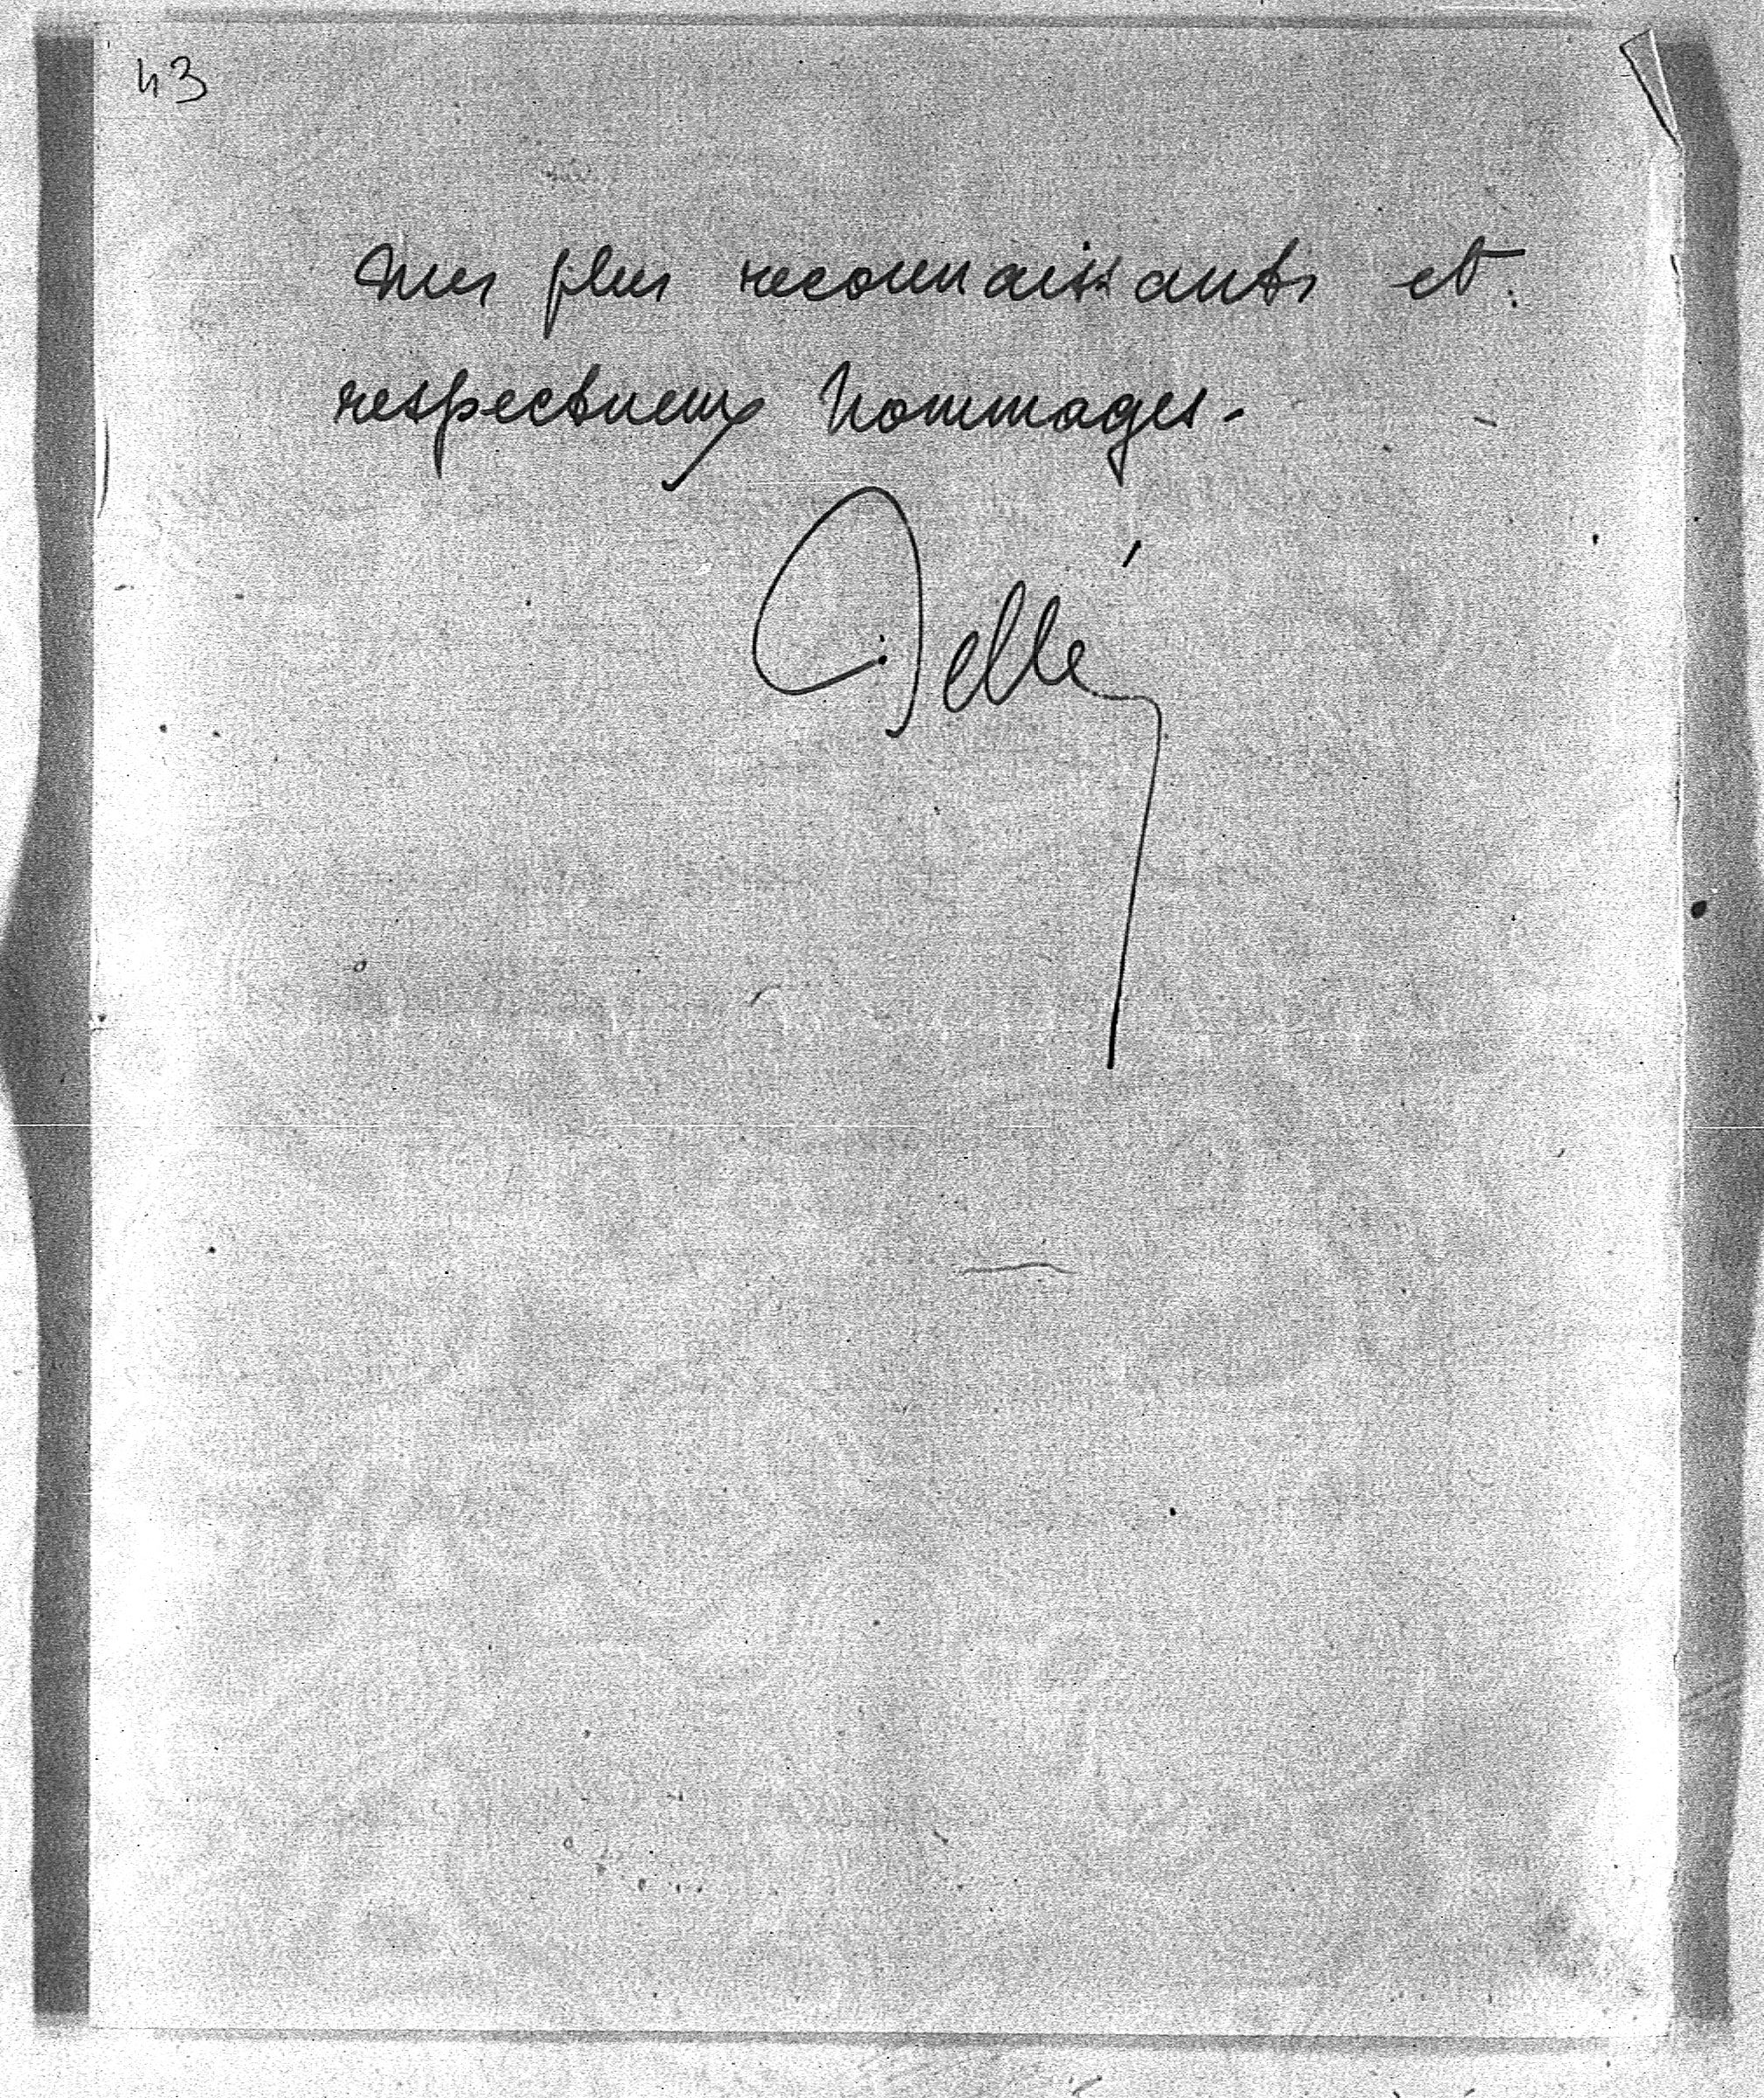 43
mes plus reconnaissants et
respectueux hommages.